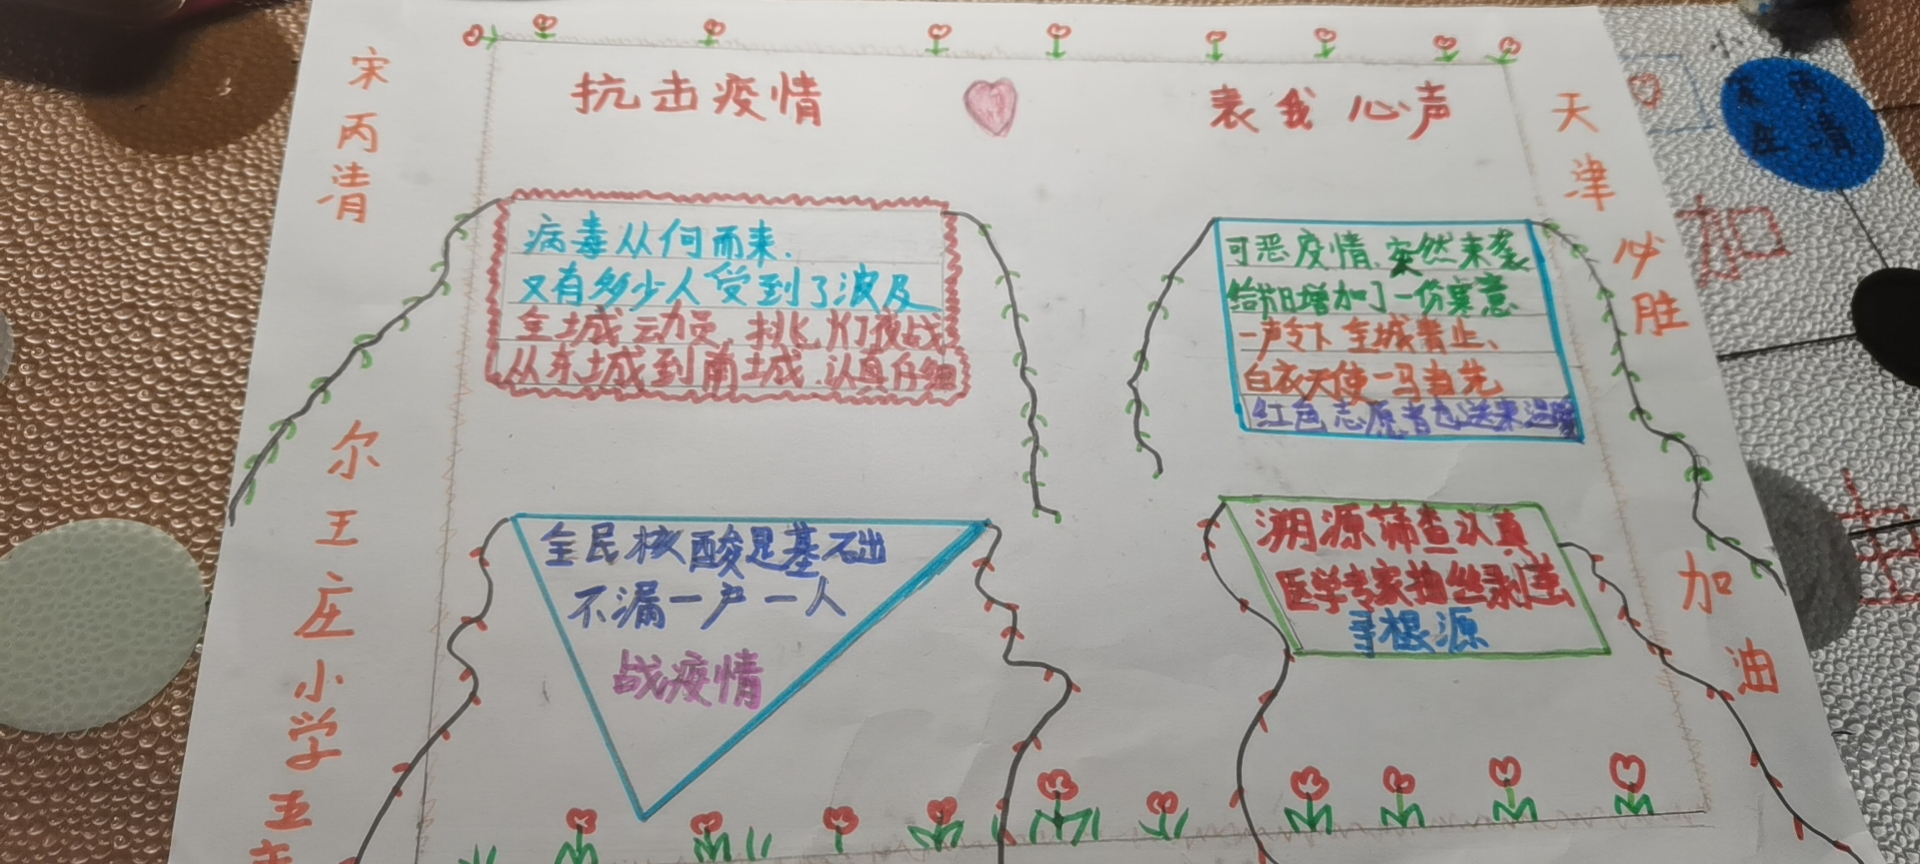 抗击疫情
表我心声
宋丙清
尔王庄小学五
天津必胜
加油
病毒从何而来.
又有多少人受到了波及
全城动员,挑灯夜战
从东城到南城.认真仔细
可恶疫情.突然来袭
给节日增加了一份寒意
一声令下全城禁止、
白衣天使一马当先
红色志愿者也送来温暖
全民核酸是基础
不漏一户一人
战疫情
溯源筛查认真
医学专家抽丝剥茧
寻根源
加